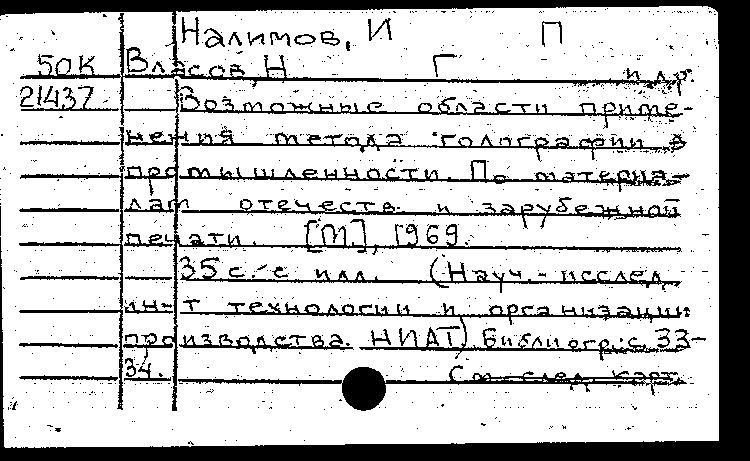 Налимов, И П
50К Власов, Н Г и др.
21437 Возможные области приме-
нения метода голографии в
промышленности. По материа-
лам отечеств. и зарубежной
печати. [М.], 1969.
35 с. с илл. (Науч.-исслед.
ин-т технологии и организации
производства. НИАТ) Библиогр.: с. 33-
34.
См. след. карт.